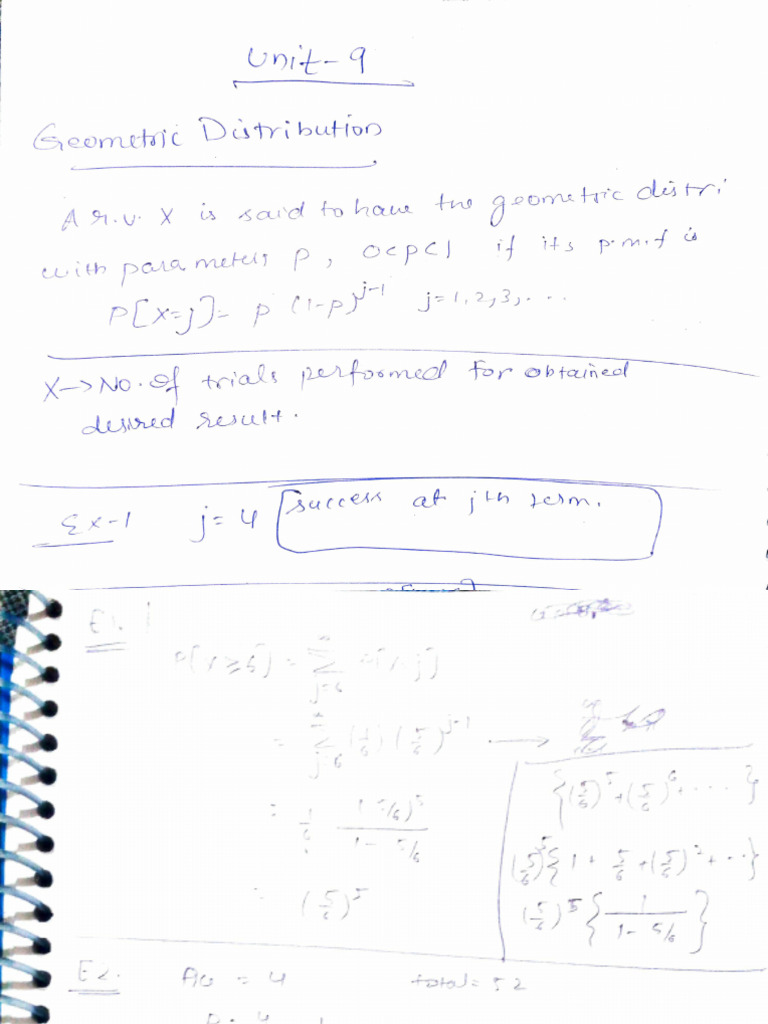 Unit-9
Geometric Distribution
A r.v. X is said to have the geometric distri
with parameters p, 0<p<1 if its p.m.f is
P[X=j]= p (1-p)^{j-1} j=1,2,3,...
X→No. of trials performed for obtained
desired result.
Ex-1 j=4 success at jth term.
E1.
P(X≥6) = Σ_{j=6} P[X=j]
= Σ_{j=6} (1/6) (5/6)^{j-1} →
{(5/6)^5+(5/6)^6+....}
= 1/6 (5/6)^5 / 1-5/6
(5/6)^5{1+ 5/6 +(5/6)^2+..}
= (5/6)^5
(5/6)^5 {1 / 1-5/6}
E2. Ac = 4 total = 52